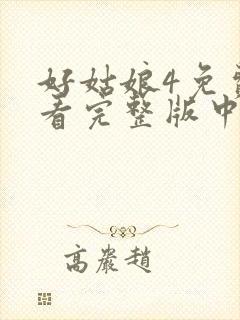 好姑娘4免费
看完整版中
高嚴趙